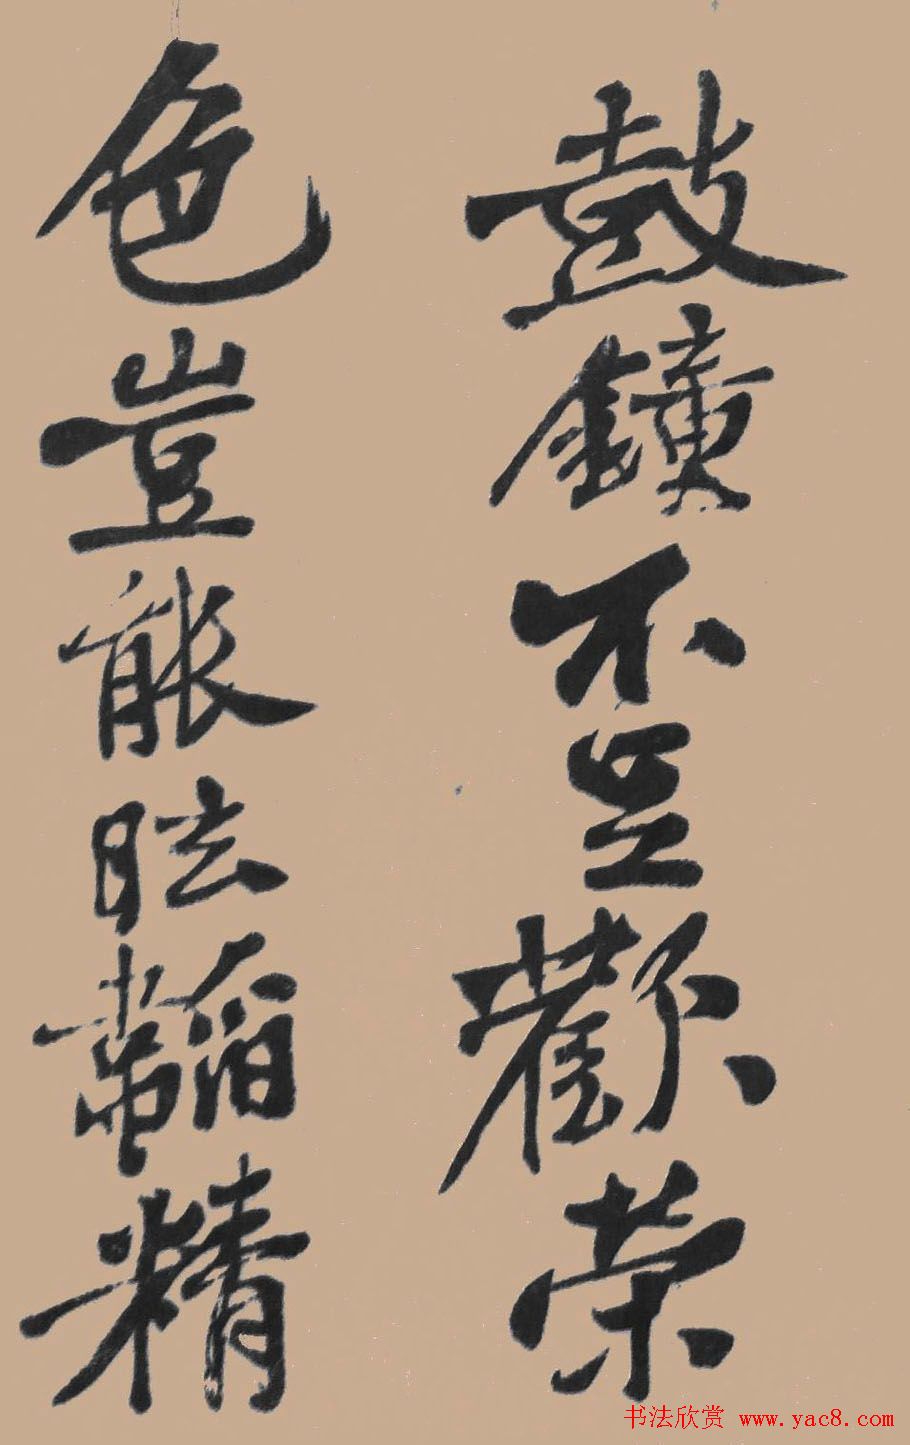 鼓鐘不足歡榮
色豈能眩韜精
书法欣赏 www.yac8.com